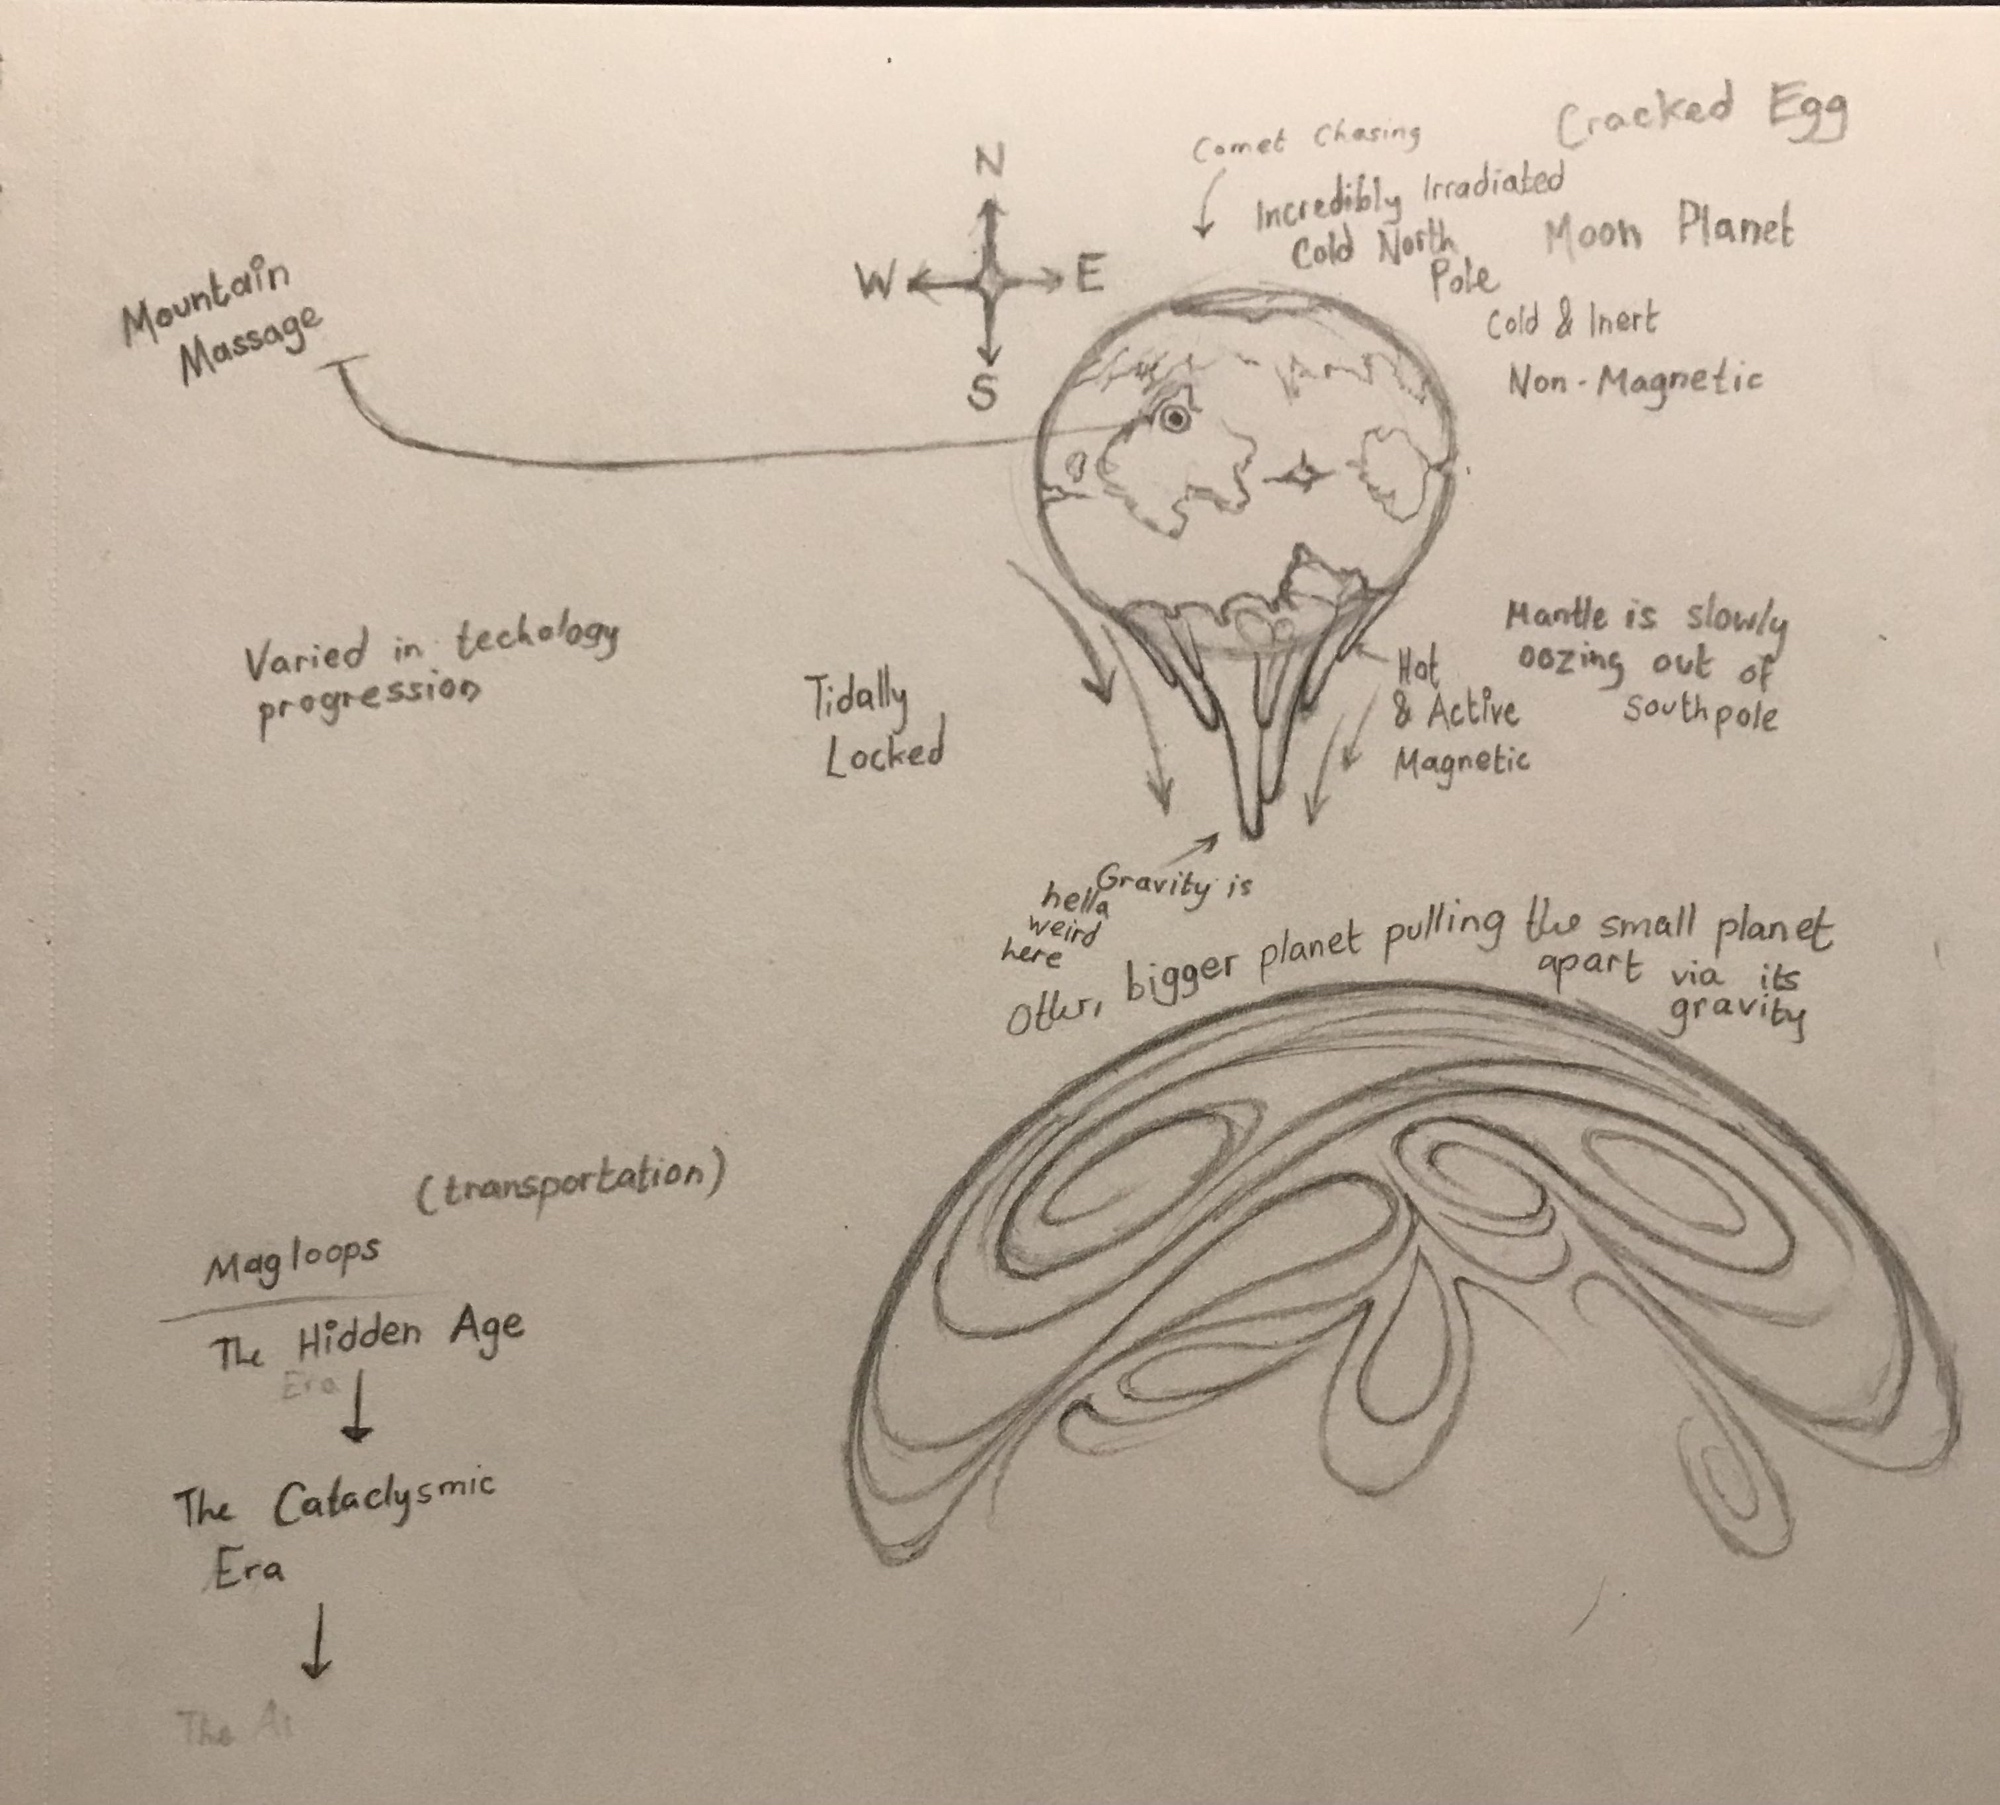 Cracked Egg
Comet Chasing
Incredibly Irradiated
Cold North
Pole
Moon Planet
Cold & Inert
Non-Magnetic
N
W
E
S
Mountain
Massage
Varied in techology
progression
Tidally
Locked
Mantle is slowly
oozing out of
southpole
Hot
& Active
Magnetic
Gravity is
hella
weird
here
Other, bigger planet pulling the small planet
apart via its
gravity
(transportation)
Magloops
The Hidden Age
Era
The Cataclysmic
Era
The